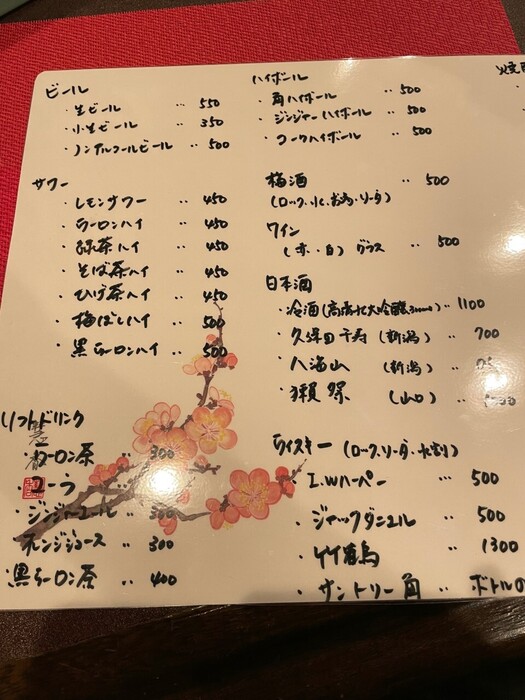 ビール
・生ビール ‥ 550
・小生ビール ‥ 350
・ノンアルコールビール ‥ 500
サワー
・レモンサワー ‥ 450
・ウーロンハイ ‥ 450
・緑茶ハイ ‥ 450
・そば茶ハイ ‥ 450
・ひげ茶ハイ ‥ 450
・梅ぼしハイ ‥ 500
・黒ウーロンハイ ‥ 500
ソフトドリンク
・ウーロン茶 ‥ 300
・コーラ ‥
・ジンジャーエール ‥ 300
オレンジジュース ‥ 300
黒ウーロン茶 ‥ 400
ハイボール
・角ハイボール ‥ 500
・ジンジャーハイボール ‥ 500
・コークハイボール ‥ 500
梅酒 ‥ 500
(ロック、水、お湯、ソーダ)
ワイン
(赤・白) グラス ‥ 500
日本酒
・冷酒 (高清水大吟醸300ml) ‥ 1100
・久保田千寿 (新潟) ‥ 700
・八海山 (新潟) ‥
・獺祭 (山口) ‥
ウイスキー (ロック、ソーダ、水割り)
・I.Wハーパー ‥ 500
・ジャックダニエル ‥ 500
・竹鶴 ‥ 1300
・サントリー角 ‥ ボトルの